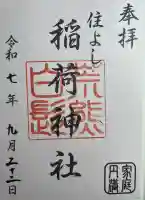 奉拝
住よし
稲荷神社
荒熊
白髭
令和七年九月二十二日
家庭円満